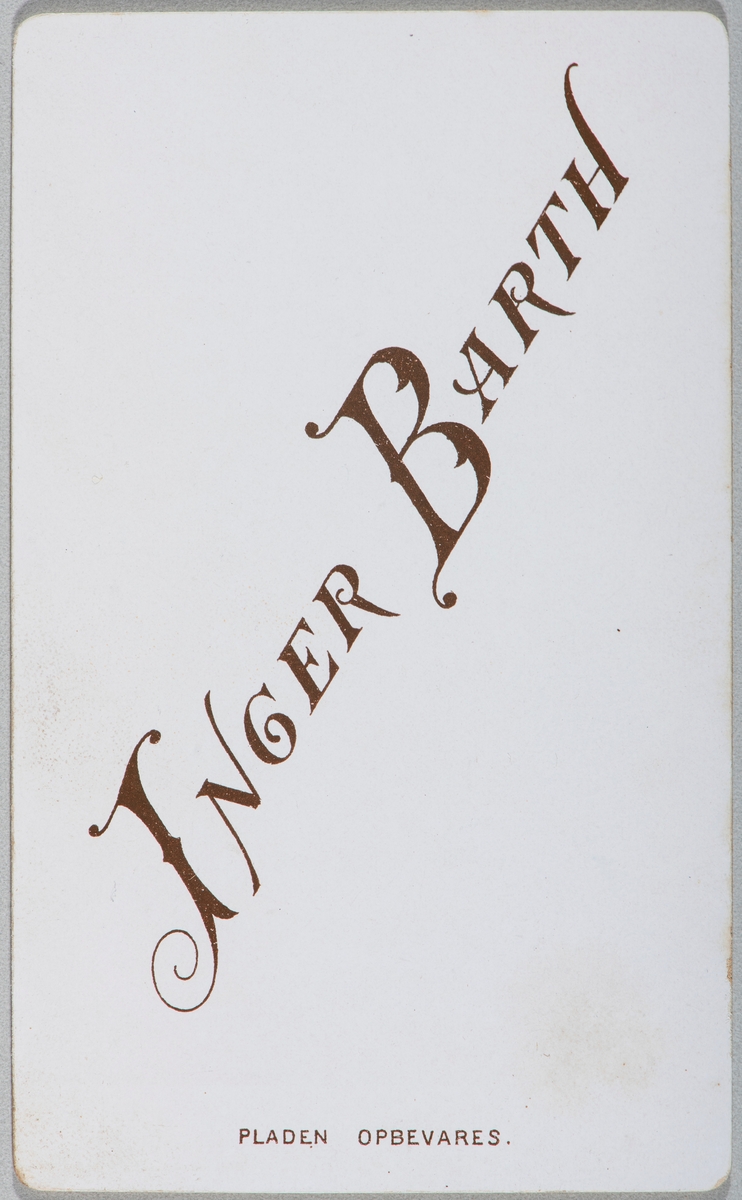 INGER BARTH
PLADEN OPBEVARES.